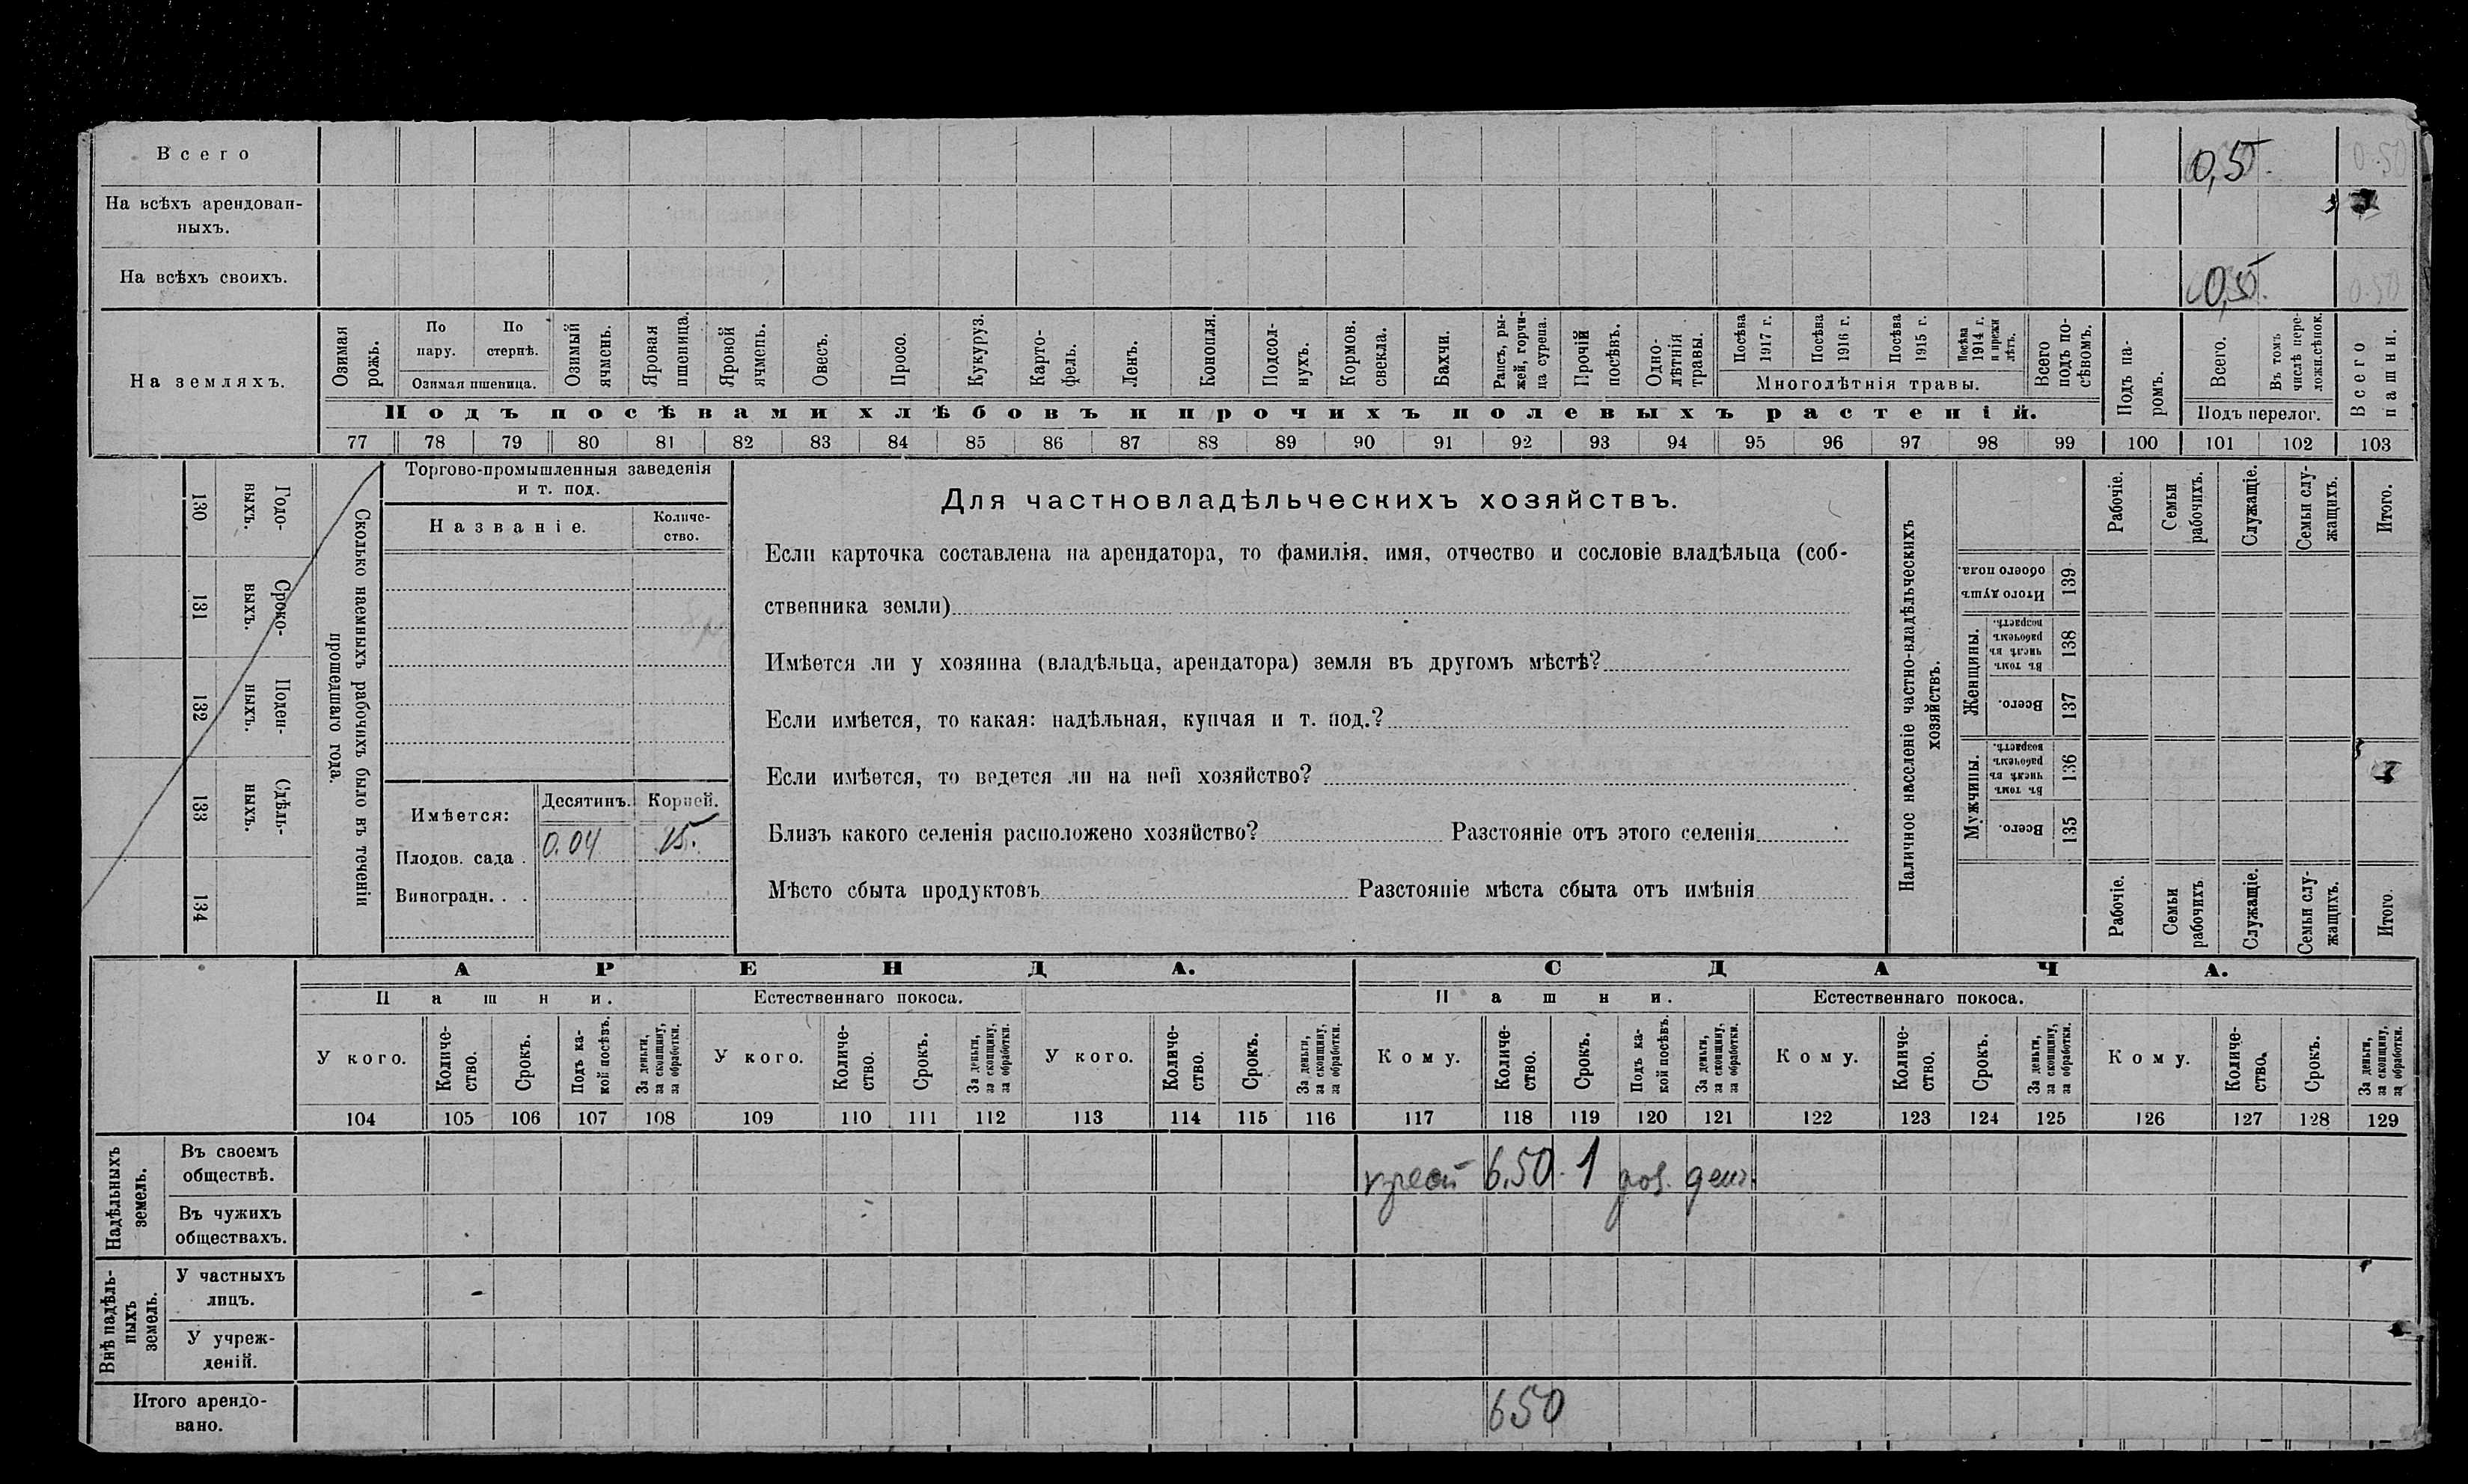 Всего 0,5. 0.50
На всѣхъ арендован-
ныхъ.
На всѣхъ своихъ. 0,5. 0.50
На земляхъ.
Озимая рожь.
По пару.
По стернѣ.
Озимая пшеница.
Озимый ячмень.
Яровая пшеница.
Яровой ячмень.
Овесъ.
Просо.
Кукуруз.
Карто-
фель.
Ленъ.
Конопля.
Подсол-
нухъ.
Кормов. свекла.
Бахчи.
Рапсъ, ры-
жей, горчи-
ца сурепа.
Прочій посѣвъ.
Одно-
лѣтнія травы.
Посѣва 1917 г.
Посѣва 1916 г.
Посѣва 1915 г.
Посѣва 1914 г. и прежн лѣтъ.
Многолѣтнія травы.
Всего подъ по-
сѣвомъ.
Подъ па-
ромъ.
Всего.
Въ томъ числѣ пере-
ложн.сѣнок.
Подъ перелог.
Всего пашни.
Подъ посѣвами хлѣбовъ и прочихъ полевыхъ растеній.
77 78 79 80 81 82 83 84 85 86 87 88 89 90 91 92 93 94 95 96 97 98 99 100 101 102 103
130 Годо-
выхъ.
131 Сроко-
выхъ.
132 Поден-
ныхъ.
133 Сдѣль-
ныхъ.
134
Сколько наемныхъ рабочихъ было въ теченіи
прошедшаго года.
Торгово-промышленныя заведенія
и т. под.
Названіе.
Количе-
ство.
Имѣется: Десятинъ. Корней.
Плодов. сада . 0.04 15.
Виноградн. . .
Для частновладѣльческихъ хозяйствъ.
Если карточка составлена на арендатора, то фамилія, имя, отчество и сословіе владѣльца (соб-
ственника земли)
Имѣется ли у хозяина (владѣльца, арендатора) земля въ другомъ мѣстѣ?
Если имѣется, то какая: надѣльная, купчая и т. под.?
Если имѣется, то ведется ли на ней хозяйство?
Близъ какого селенія расположено хозяйство? Разстояніе отъ этого селенія
Мѣсто сбыта продуктовъ Разстояніе мѣста сбыта отъ имѣнія
Наличное населеніе частно-владѣльческихъ
хозяйствъ.
Рабочіе.
Семьи рабочихъ.
Служащіе.
Семьи слу-
жащихъ.
Итого.
Итого душъ обоего пола. 139
Женщины.
Въ томъ числѣ въ рабочемъ возрастѣ. 138
Всего. 137
Мужчины.
Въ томъ числѣ въ рабочемъ возрастѣ. 136
Всего. 135
Рабочіе.
Семьи рабочихъ
Служащіе.
Семьи слу-
жащихъ.
Итого
АРЕНДА. СДАЧА.
Пашни. Естественнаго покоса. Пашни. Естественнаго покоса.
У кого.
Количе-
ство.
Срокъ.
Подъ ка-
кой посѣвъ.
За деньги, за скопщину, за обработки.
У кого.
Количе-
ство.
Срокъ.
За деньги, за скопщину, за обработки.
У кого.
Количе-
ство.
Срокъ.
За деньги, за скопщину, за обработки.
Кому.
Количе-
ство.
Срокъ.
Подъ ка-
кой посѣвъ.
За деньги, за скопщину, за обработки.
Кому.
Количе-
ство.
Срокъ.
За деньги, за скопщину, за обработки.
Кому.
Количе-
ство.
Срокъ.
За деньги, за скопщину, за обработки.
104 105 106 107 108 109 110 111 112 113 114 115 116 117 118 119 120 121 122 123 124 125 126 127 128 129
Надѣльныхъ
земель.
Въ своемъ
обществѣ.
6.50. 1
Въ чужихъ
обществахъ.
Внѣ надѣль-
ныхъ
земель.
У частныхъ
лицъ.
У учреж-
деній.
Итого арендо-
вано.
650